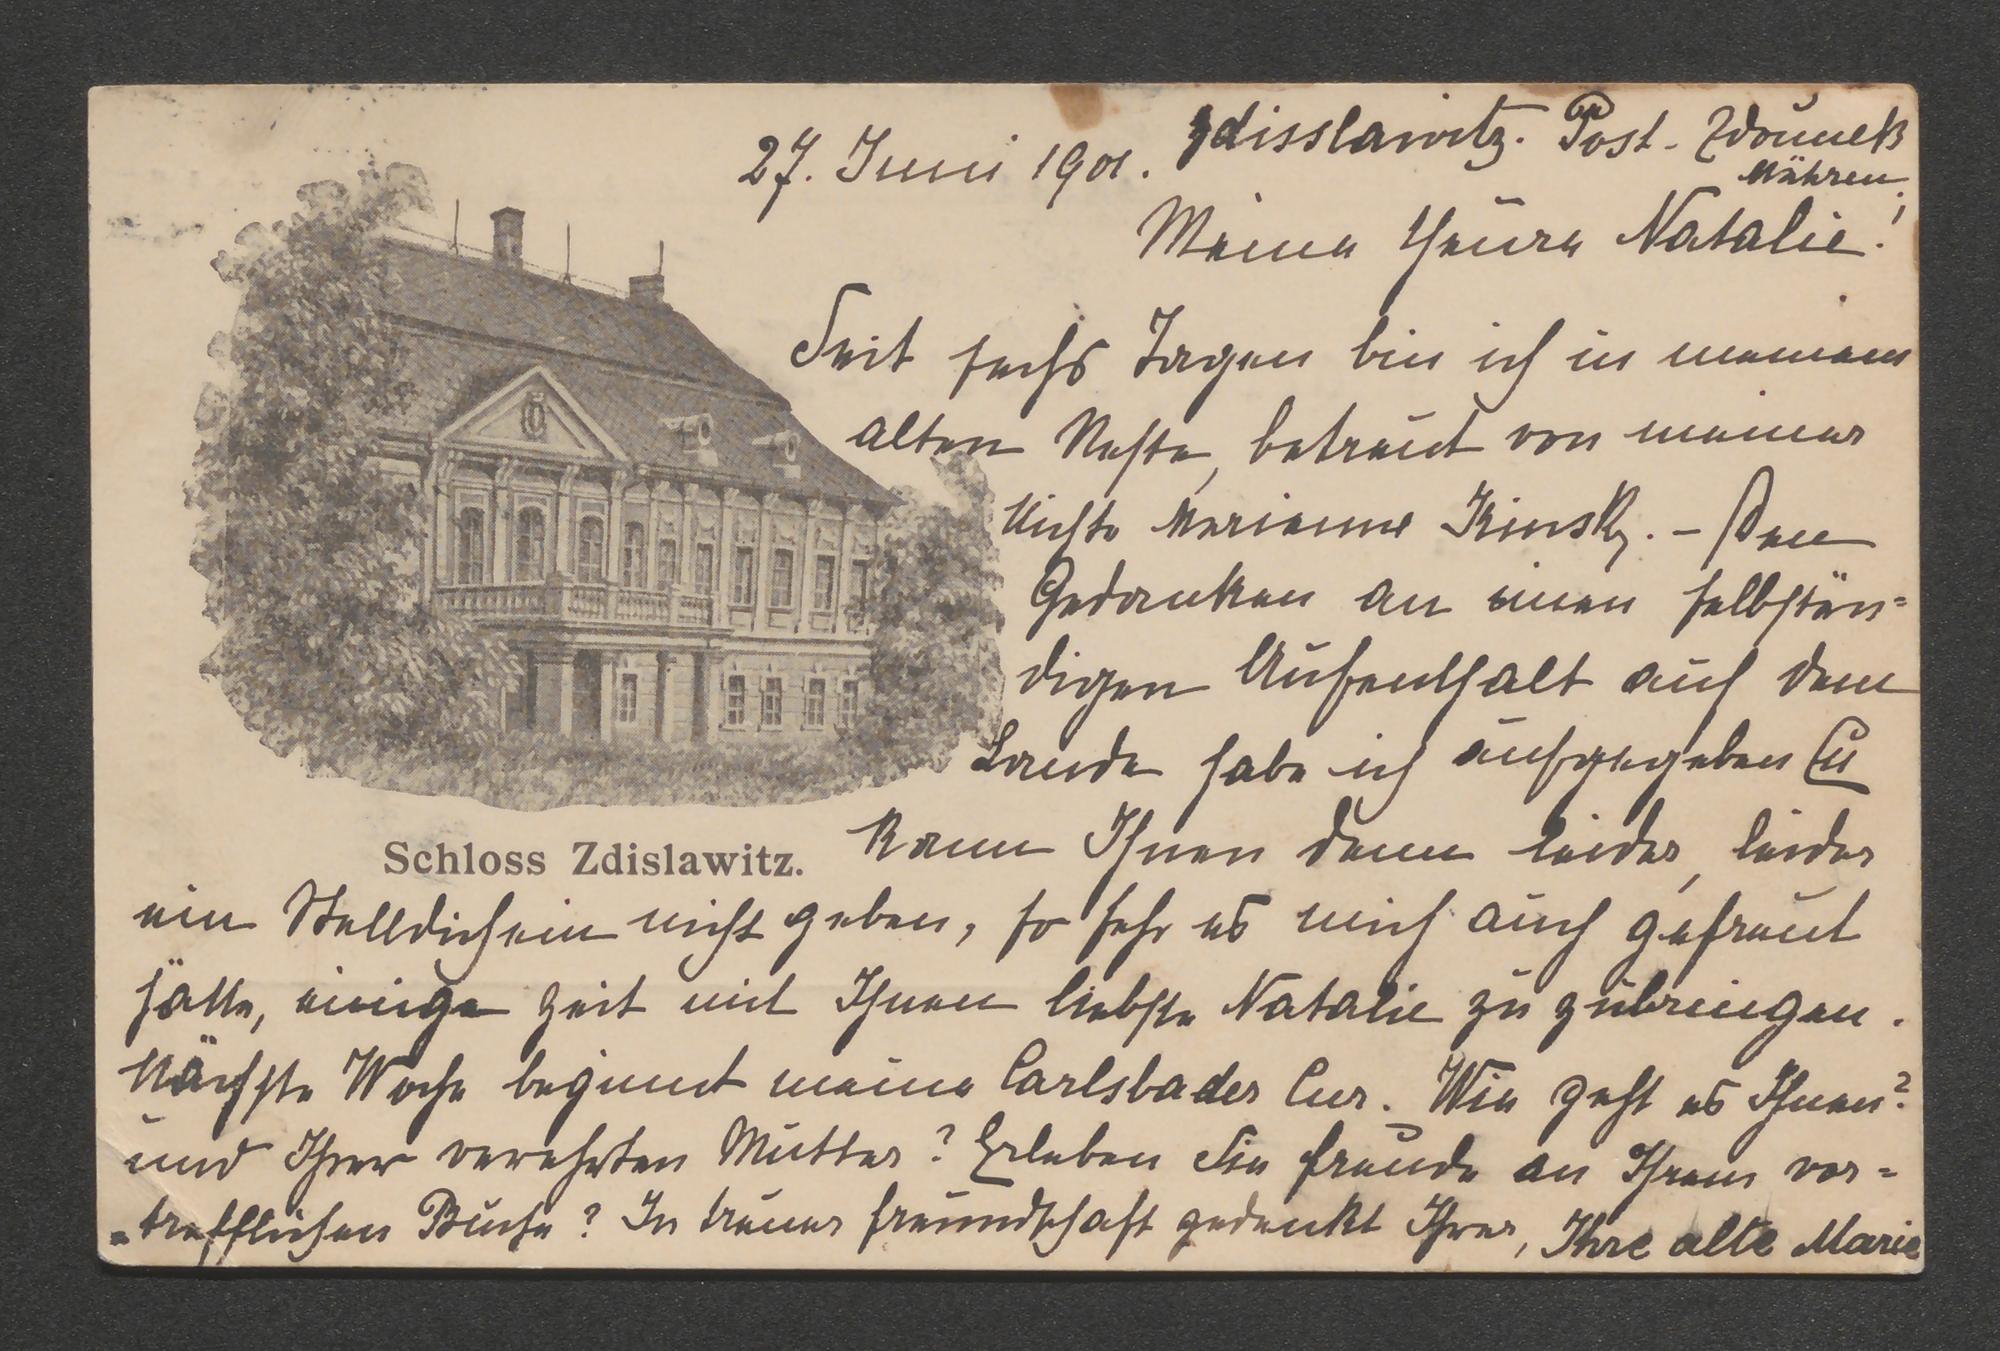 27. Juni 1901. Zdisslawitz. Post. Zdounek
Mähren,
Meine theure Natalie!
Seit sechs Tagen bin ich in meinem
alten Neste, betreut von meiner
Nichte Marianne Kinsky. – Den
Gedanken an einen selbstän=
digen Aufenthalt auf dem
Lande habe ich aufgegeben u
kann Ihnen denn leider, leider
Schloss Zdislawitz.
ein Stelldichein nicht geben, so sehr es mich auch gefreut
hätte, einige Zeit mit Ihnen liebste Natalie zu zubringen.
Nächste Woche beginnt meine Carlsbader Cur. Wie geht es Ihnen?
und Ihrer verehrten Mutter? Erleben Sie Freude an Ihrem vor=
=trefflichen Buche? In treuer Freundschaft gedenkt Ihrer, Ihre alte Marie